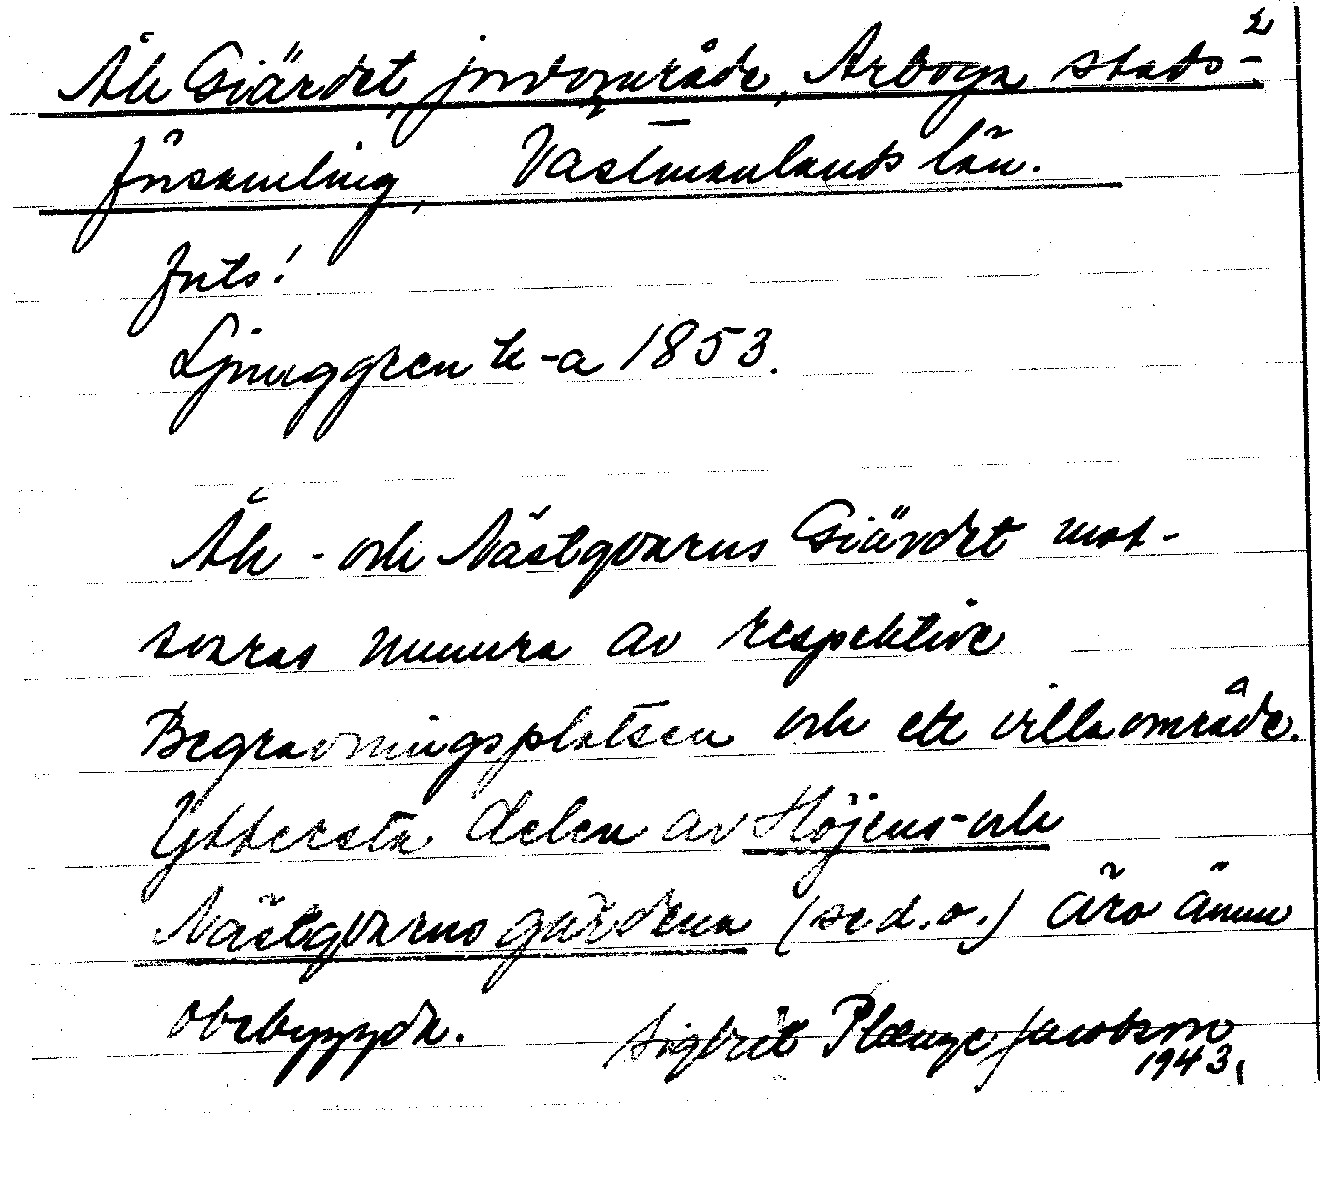 2
Åh Giärdet, jordområde, Arboga stads-
församling, Västmanlands län.
Juts!
Ljunggren k-a 1853.
Åh - och Nästgvarns Giärdet mot-
svaras numera av respektive
Begravningsplatsen och ett villaområde.
Yttersta delen av Höjens- och
Nästgvarns gärdena (se d. o.) äro ännu
obebyggda. Sigbrit Plænge Jacobson
1943.